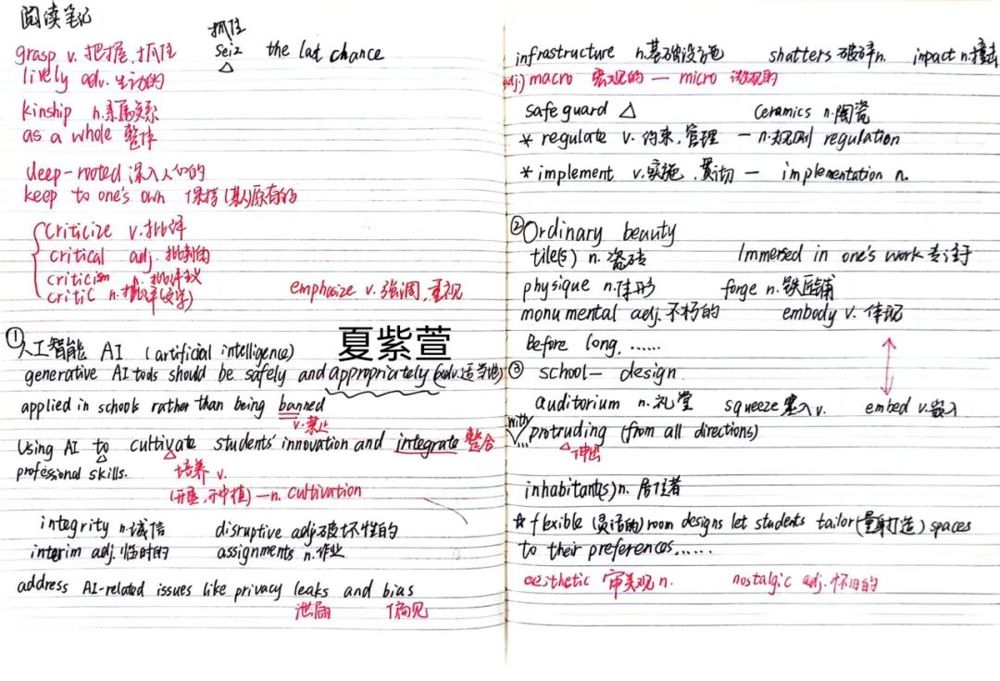 阅读笔记
抓住
grasp v. 把握、抓住 seiz the last chance
lively adv. 生动的
kinship n.亲属关系
as a whole 整体
deep-rooted 深入人心的
keep to one's own 保持(某人)原有的
criticize v.批评
critical adj. 批判的
criticism n. 批评
critic n.批评(文学) emphasize v.强调、重视
①人工智能 AI (artificial intelligence)
夏紫萱
generative AI tools should be safely and appropriately (adv.适当地)
applied in schools rather than being banned
v.禁止
Using AI to cultivate students' innovation and integrate 整合
professional skills. 培养 v.
(开垦,种植)—n. cultivation
integrity n.诚信 disruptive adj.破坏性的
interim adj.临时的 assignments n.作业
address AI-related issues like privacy leaks and bias
泄漏 偏见
infrastructure n.基础设施 shatters 破碎n. inpact n.撞击
(adj.) macro 宏观的 — micro 微观的
safe guard ceramics n.陶瓷
* regulate v. 约束,管理 — n.规则 regulation
* implement v.实施、贯彻 — implementation n.
②Ordinary beauty
tile(s) n.瓷砖 Immersed in one's work 专注于
physique n.体形 forge n.铁匠铺
monumental adj.不朽的 embody v. 体现
Before long, ......
③ school— design
auditorium n.礼堂 squeeze 塞入v. embed v.嵌入
with
protruding (from all directions)
伸出
inhabitant(s) n. 居住者
* flexible (灵活的) room designs let students tailor(量身打造) spaces
to their preferences......
aesthetic 审美观 n. nostalgic adj.怀旧的